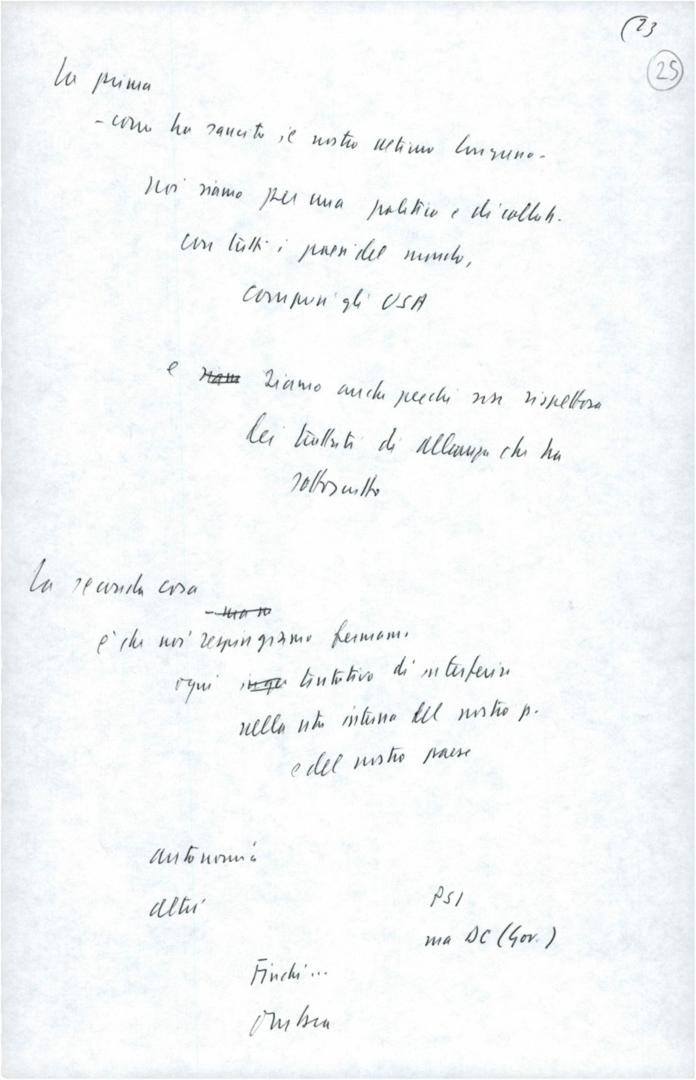 (23
25
La prima
- come ha sancito il nostro ultimo Congresso -
noi siamo per una politica e di collab.
con tutti i paesi del mondo,
compresi gli USA
e siamo anche perché sia rispettosa
dei trattati di alleanza che ha
sottoscritto
La seconda cosa
è che noi respingiamo fermam.
ogni tentativo di interferire
nella vita interna del nostro p.
e del nostro paese
autonomia
altri
PSI
ma DC (Gov.)
Finché...